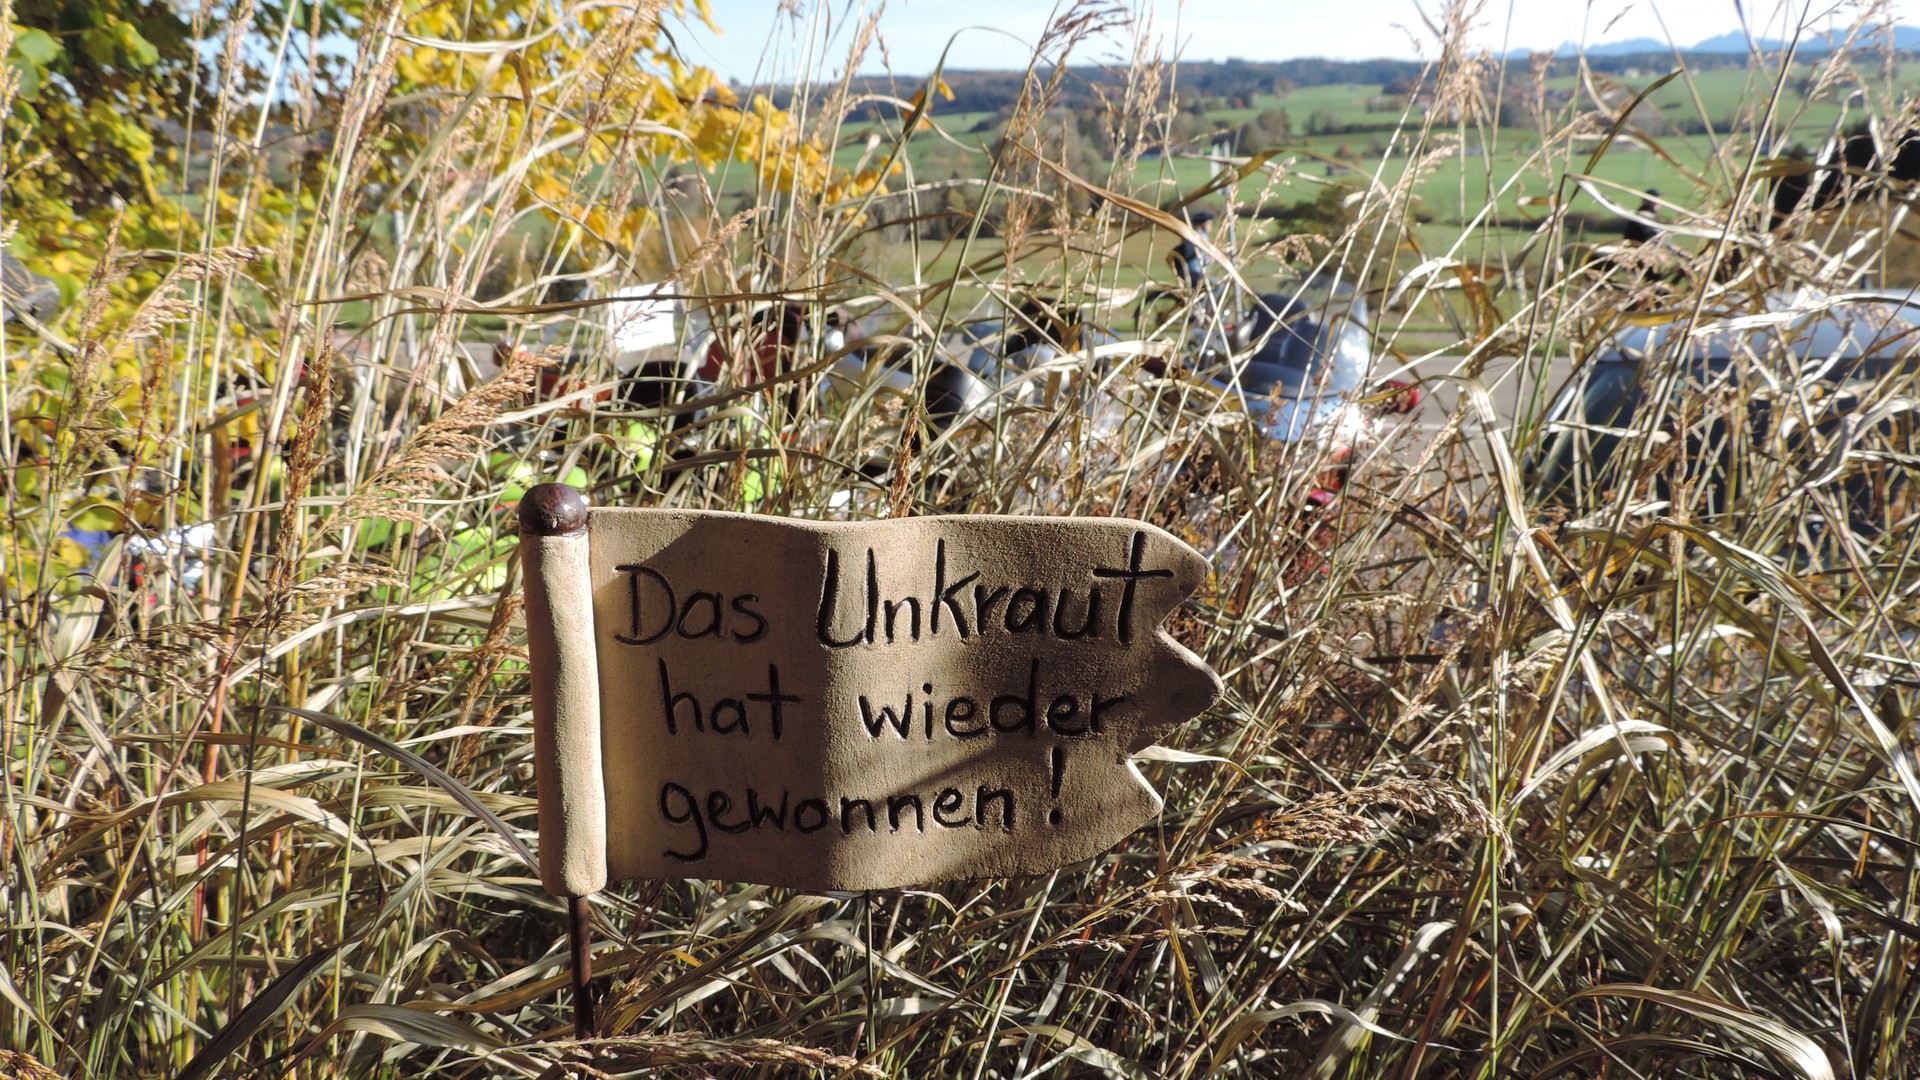 Das Unkraut
hat wieder
gewonnen!